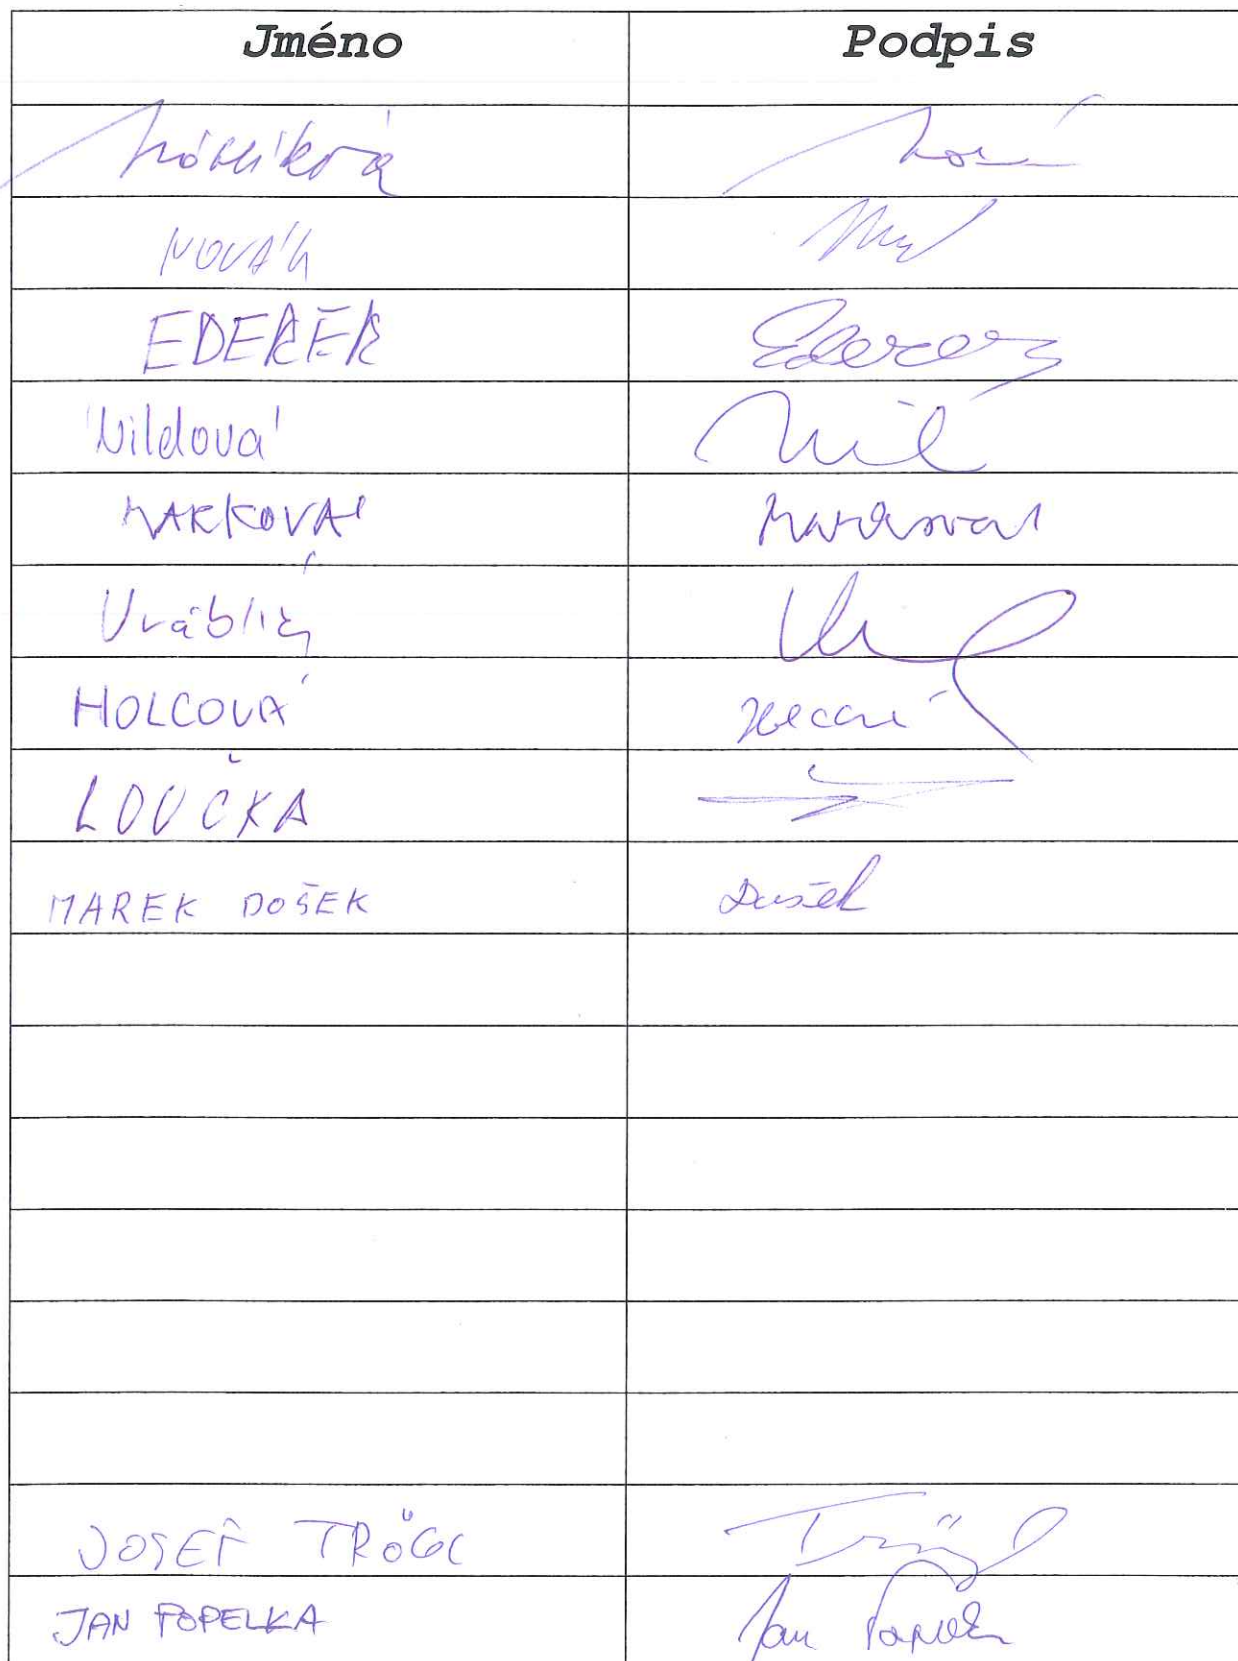 Jméno Podpis
NOVÁK
EDERER Ederer
Nildová Nil
MARKOVÁ Marková
Vráblík
HOLCOVÁ
LOUČKA
MAREK DOŠEK Došek
JOSEF TRÖGL Trögl
JAN POPELKA Jan Popelka